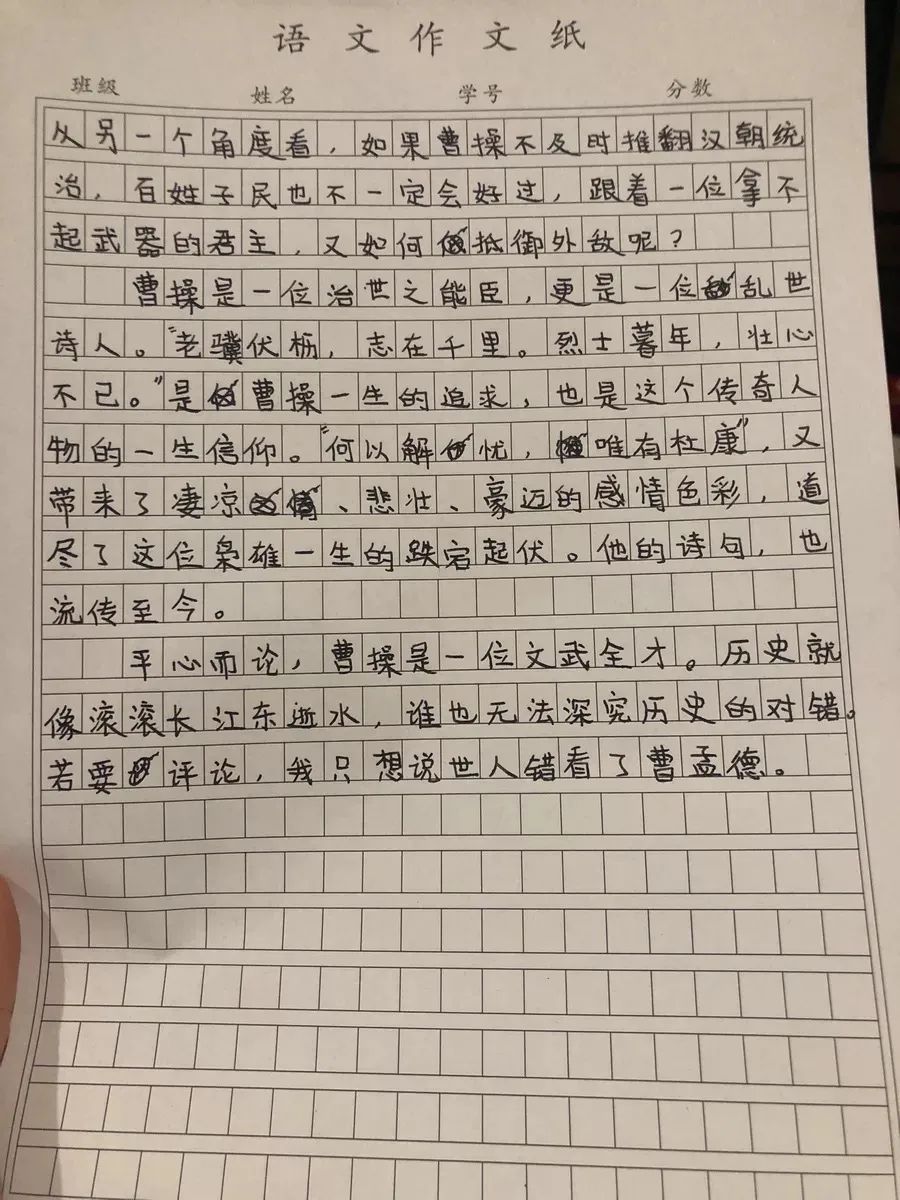 语文作文纸
班级 姓名 学号 分数
从另一个角度看，如果曹操不及时推翻汉朝统
治，百姓子民也不一定会好过，跟着一位拿不
起武器的君主，又如何抵御外敌呢？
曹操是一位治世之能臣，更是一位乱世
诗人。“老骥伏枥，志在千里。烈士暮年，壮心
不已。”是曹操一生的追求，也是这个传奇人
物的一生信仰。“何以解忧，唯有杜康”，又
带来了凄凉、悲壮、豪迈的感情色彩，道
尽了这位枭雄一生的跌宕起伏。他的诗句，也
流传至今。
平心而论，曹操是一位文武全才。历史就
像滚滚长江东逝水，谁也无法深究历史的对错。
若要评论，我只想说世人错看了曹孟德。